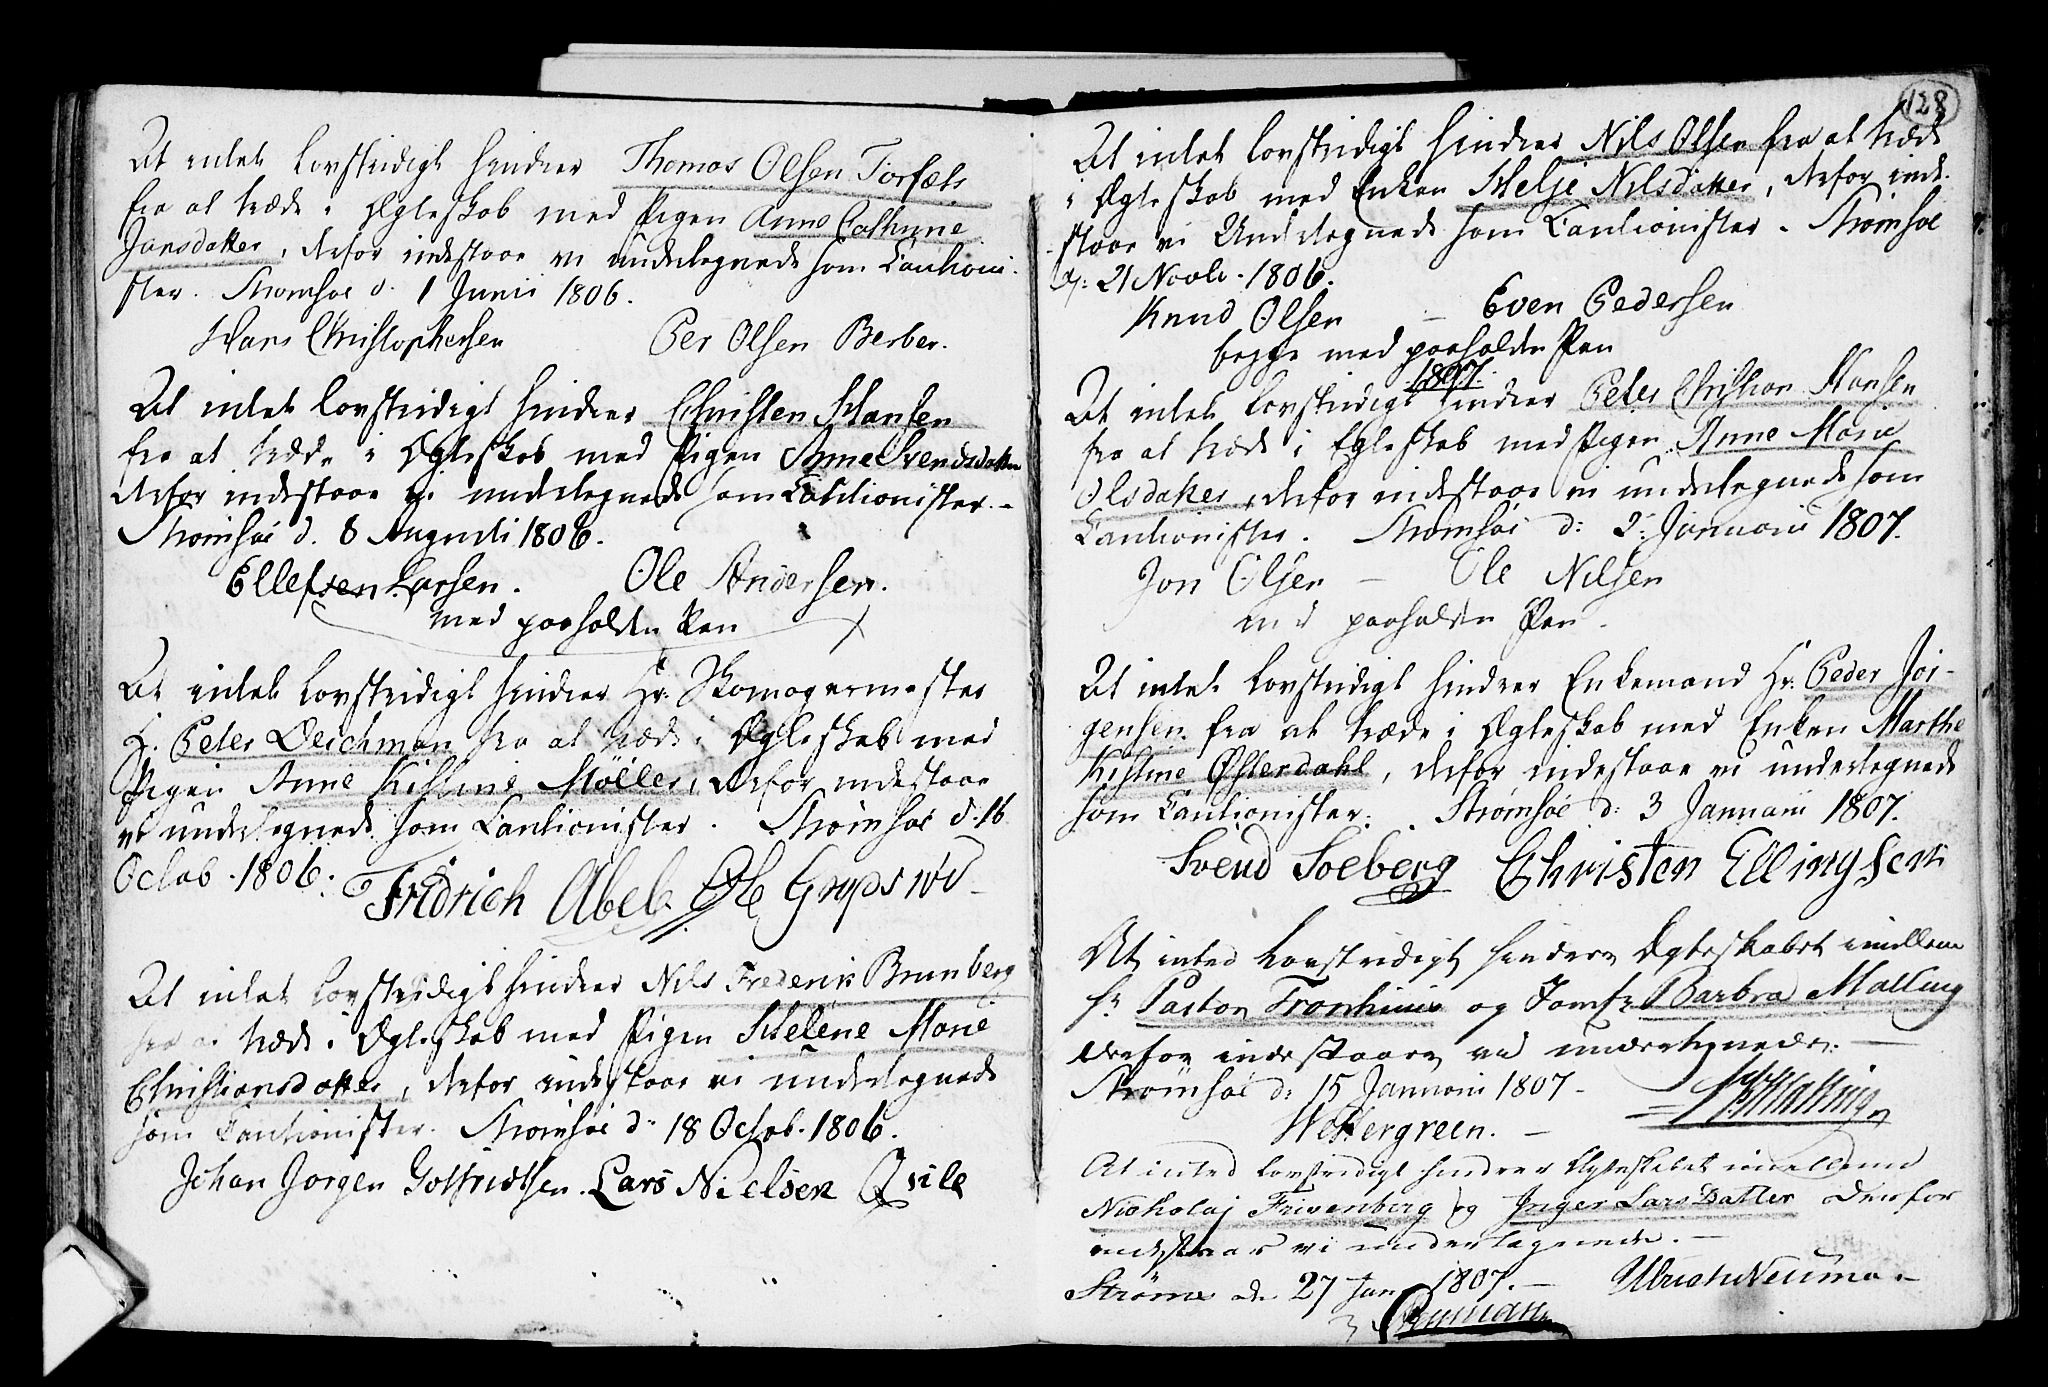 At intet Lovstridigt hindrer Thomas Olsen
fra at træde i Ægteskab med Pigen Anne Cathrine
Jansdatter, derfor indestaae vi undertegnede som Cautioni-
ster. Strømsøe d. 1 Junii 1806.
Hans Christophersen Per Olsen Berber.
At intet Lovstridigt hindrer Christen Hansen
fra at træde i Ægteskab med Pigen Anne Svendsdatter
derfor indestaae vi undertegnede som Cautionister. -
Strømsøe d. 8 Augusti 1806.
Ellefsen Larsen. Ole Andersen.
med paaholden Pen
At intet Lovstridigt hindrer Hr. Skomagermester
H. Peter Deichman fra at træde i Ægteskab med
Pigen Anne Kistine Møller, derfor indestaae
vi undertegnede som Cautionister. Strømsøe d. 16
Octob. 1806.
Fridrich Abel. Ole
At intet Lovstridigt hindrer Nils Frederik Brunberg
fra at træde i Ægteskab med Pigen Helene Marie
Christiansdatter, derfor indestaae vi undertegnede
som Cautionister. Strømsøe d. 18 Octob. 1806.
Johan Jørgen Gotfridtsen. Lars Nielsen Qvile
128
At intet Lovstridigt hindrer Nils Olsen fra at træde
i Ægteskab med Enken Helje Nilsdatter, derfor inde-
staae vi Undertegnede som Cautionister. Strømsøe
d: 21 Novbr. 1806.
Knud Olsen - Even Pedersen
begge med paaholden Pen
1807.
At intet Lovstridigt hindrer Peter Christian Hansen
fra at træde i Egteskab med Pigen Anne Marie
Olsdatter, derfor indestaae vi undertegnede som
Cautionister. Strømsøe d: 2: Januarii 1807.
Jon Olsen - Ole Nilsen
med paaholden Pen.
At intet Lovstridigt hindrer Enkemand Hr. Peder Jør-
gensen fra at træde i Ægteskab med Enken Marthe
Kistine Østerdahl, derfor indestaae vi undertegnede
som Cautionister. Strømsøe d: 3 Januarii 1807.
Svend Soeberg Christen Ellingsen
At inted Lovstridigt hindrer Ægteskabet imellem
Hr Pastor Tronhuus og Jomfr Barbra Malling
derfor indestaaer vi undertegnede. -
Strømsøe d: 15 Januarii 1807 -
Wettergreen. - Malling
At inted Lovstridigt hindrer Ægteskabet imellem
Nicholaj Frisenberg og Inger Lars Datter derfor
indestaaer vi undertegnede. -
Strømsøe d 27 Jan 1807. - Ulrich Neuman
Neumann